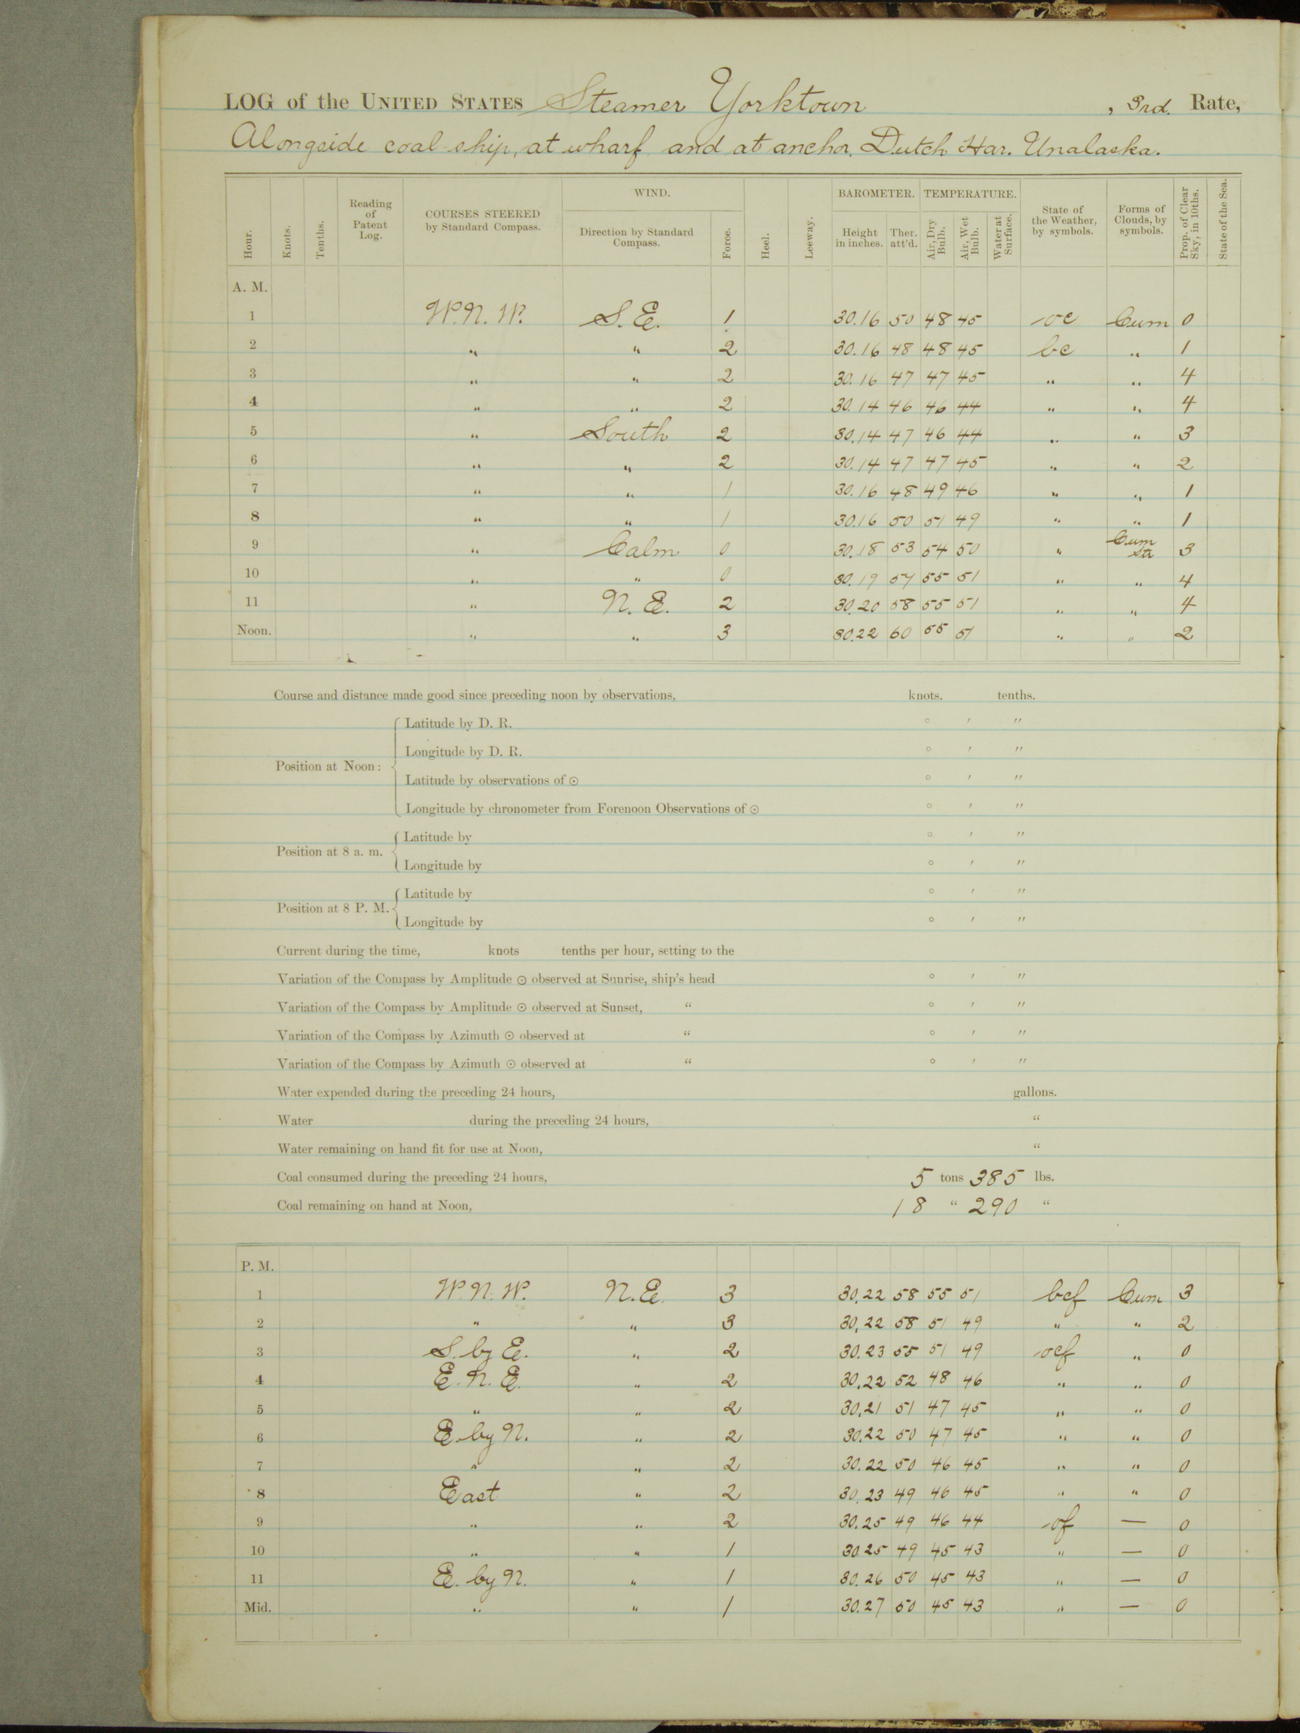 LOG of the UNITED STATES Steamer Yorktown , 3rd. Rate,
Alongside coal ship, at wharf and at anchor, Dutch Har. Unalaska.
Hour. Knots. Tenths. Reading of Patent Log. COURSES STEERED by Standard Compass. WIND. Direction by Standard Compass. Force. Heel. Leeway. BAROMETER. Height in inches. Ther. att'd. TEMPERATURE. Air, Dry Bulb. Air, Wet Bulb. Water at Surface. State of the Weather, by symbols. Forms of Clouds, by symbols. Prop. of Clear Sky, in 10ths. State of the Sea.
A. M.
1 W.N.W. S.E. 1 30.16 50 48 45 oc Cum 0
2 " " 2 30.16 48 48 45 bc " 1
3 " " 2 30.16 47 47 45 " " 4
4 " " 2 30.14 46 46 44 " " 4
5 " South 2 30.14 47 46 44 " " 3
6 " " 2 30.14 47 47 45 " " 2
7 " " 1 30.16 48 49 46 " " 1
8 " " 1 30.16 50 51 49 " " 1
9 " Calm 0 30.18 53 54 50 " Cum Str 3
10 " " 0 30.19 57 55 51 " " 4
11 " N.E. 2 30.20 58 55 51 " " 4
Noon. " " 3 30.22 60 55 51 " " 2
Course and distance made good since preceding noon by observations, knots. tenths.
Position at Noon: Latitude by D. R. ° ′ ″
Longitude by D. R. ° ′ ″
Latitude by observations of ☉ ° ′ ″
Longitude by chronometer from Forenoon Observations of ☉ ° ′ ″
Position at 8 a. m. Latitude by ° ′ ″
Longitude by ° ′ ″
Position at 8 P. M. Latitude by ° ′ ″
Longitude by ° ′ ″
Current during the time, knots tenths per hour, setting to the
Variation of the Compass by Amplitude ☉ observed at Sunrise, ship's head ° ′ ″
Variation of the Compass by Amplitude ☉ observed at Sunset, " ° ′ ″
Variation of the Compass by Azimuth ☉ observed at " ° ′ ″
Variation of the Compass by Azimuth ☉ observed at " ° ′ ″
Water expended during the preceding 24 hours, gallons.
Water during the preceding 24 hours, "
Water remaining on hand fit for use at Noon, "
Coal consumed during the preceding 24 hours, 5 tons 385 lbs.
Coal remaining on hand at Noon, 18 " 290 "
P. M.
1 W.N.W. N.E. 3 30.22 58 55 51 bcf Cum 3
2 " " 3 30.22 58 51 49 " " 2
3 S. by E. " 2 30.23 55 51 49 ocf " 0
4 E.N.E. " 2 30.22 52 48 46 " " 0
5 " " 2 30.21 51 47 45 " " 0
6 E by N. " 2 30.22 50 47 45 " " 0
7 " " 2 30.22 50 46 45 " " 0
8 East " 2 30.23 49 46 45 " " 0
9 " " 2 30.25 49 46 44 of — 0
10 " " 1 30.25 49 45 43 " — 0
11 E. by N. " 1 30.26 50 45 43 " — 0
Mid. " " 1 30.27 50 45 43 " — 0